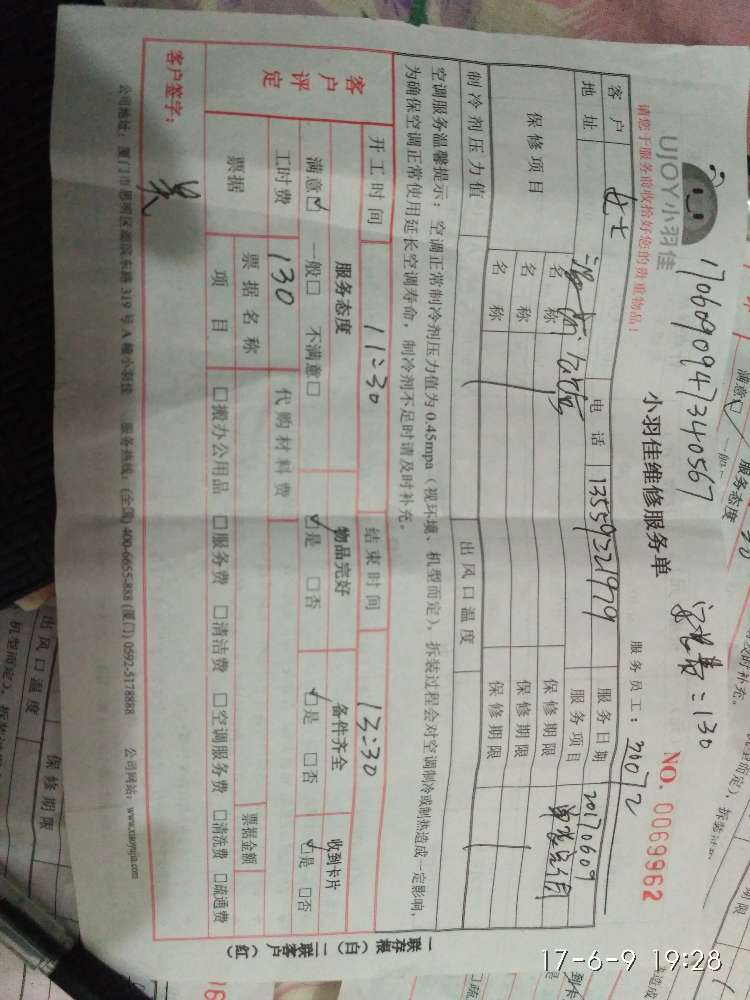 UJOY小羽佳
17060909473405​67
安装费:130
请您于服务前收拾好您的贵重物品!
小羽佳维修服务单
服务员工: 30072
NO. 0069962
客户
女士
电话
13559321979
服务日期
20170609
地址
服务项目
保修项目
名称
保修期限
名称
保修期限
名称
保修期限
制冷剂压力值
出风口温度
空调服务温馨提示:空调正常制冷剂压力值为0.45mpa(视环境、机型而定),拆装过程会对空调制冷或制热造成一定影响,
为确保空调正常使用延长空调寿命,制冷剂不足时请及时补充。
开工时间
11:30
结束时间
13:30
客户评定
服务态度
物品完好
备件齐全
收到卡片
满意☑ 一般□ 不满意□
☑是 □否
☑是 □否
☑是 □否
工时费
130
代购材料费
票据
票据名称
票据金额
项目
□搬办公用品 □服务费 □清洁费 □空调服务费 □清洗费 □疏通费
客户签字:
吴
公司地址:厦门市思明区 319号A幢小羽佳 服务热线:(全国) 400-6655-888 (厦门) 0592-5178888 公司网站:www.xiaoyujia.com
一联存根(白) 二联客户(红)
满意☑ 一般
服务态度
出风口温度
保修期限
机型而定),拆装过
17-6-9 19:28